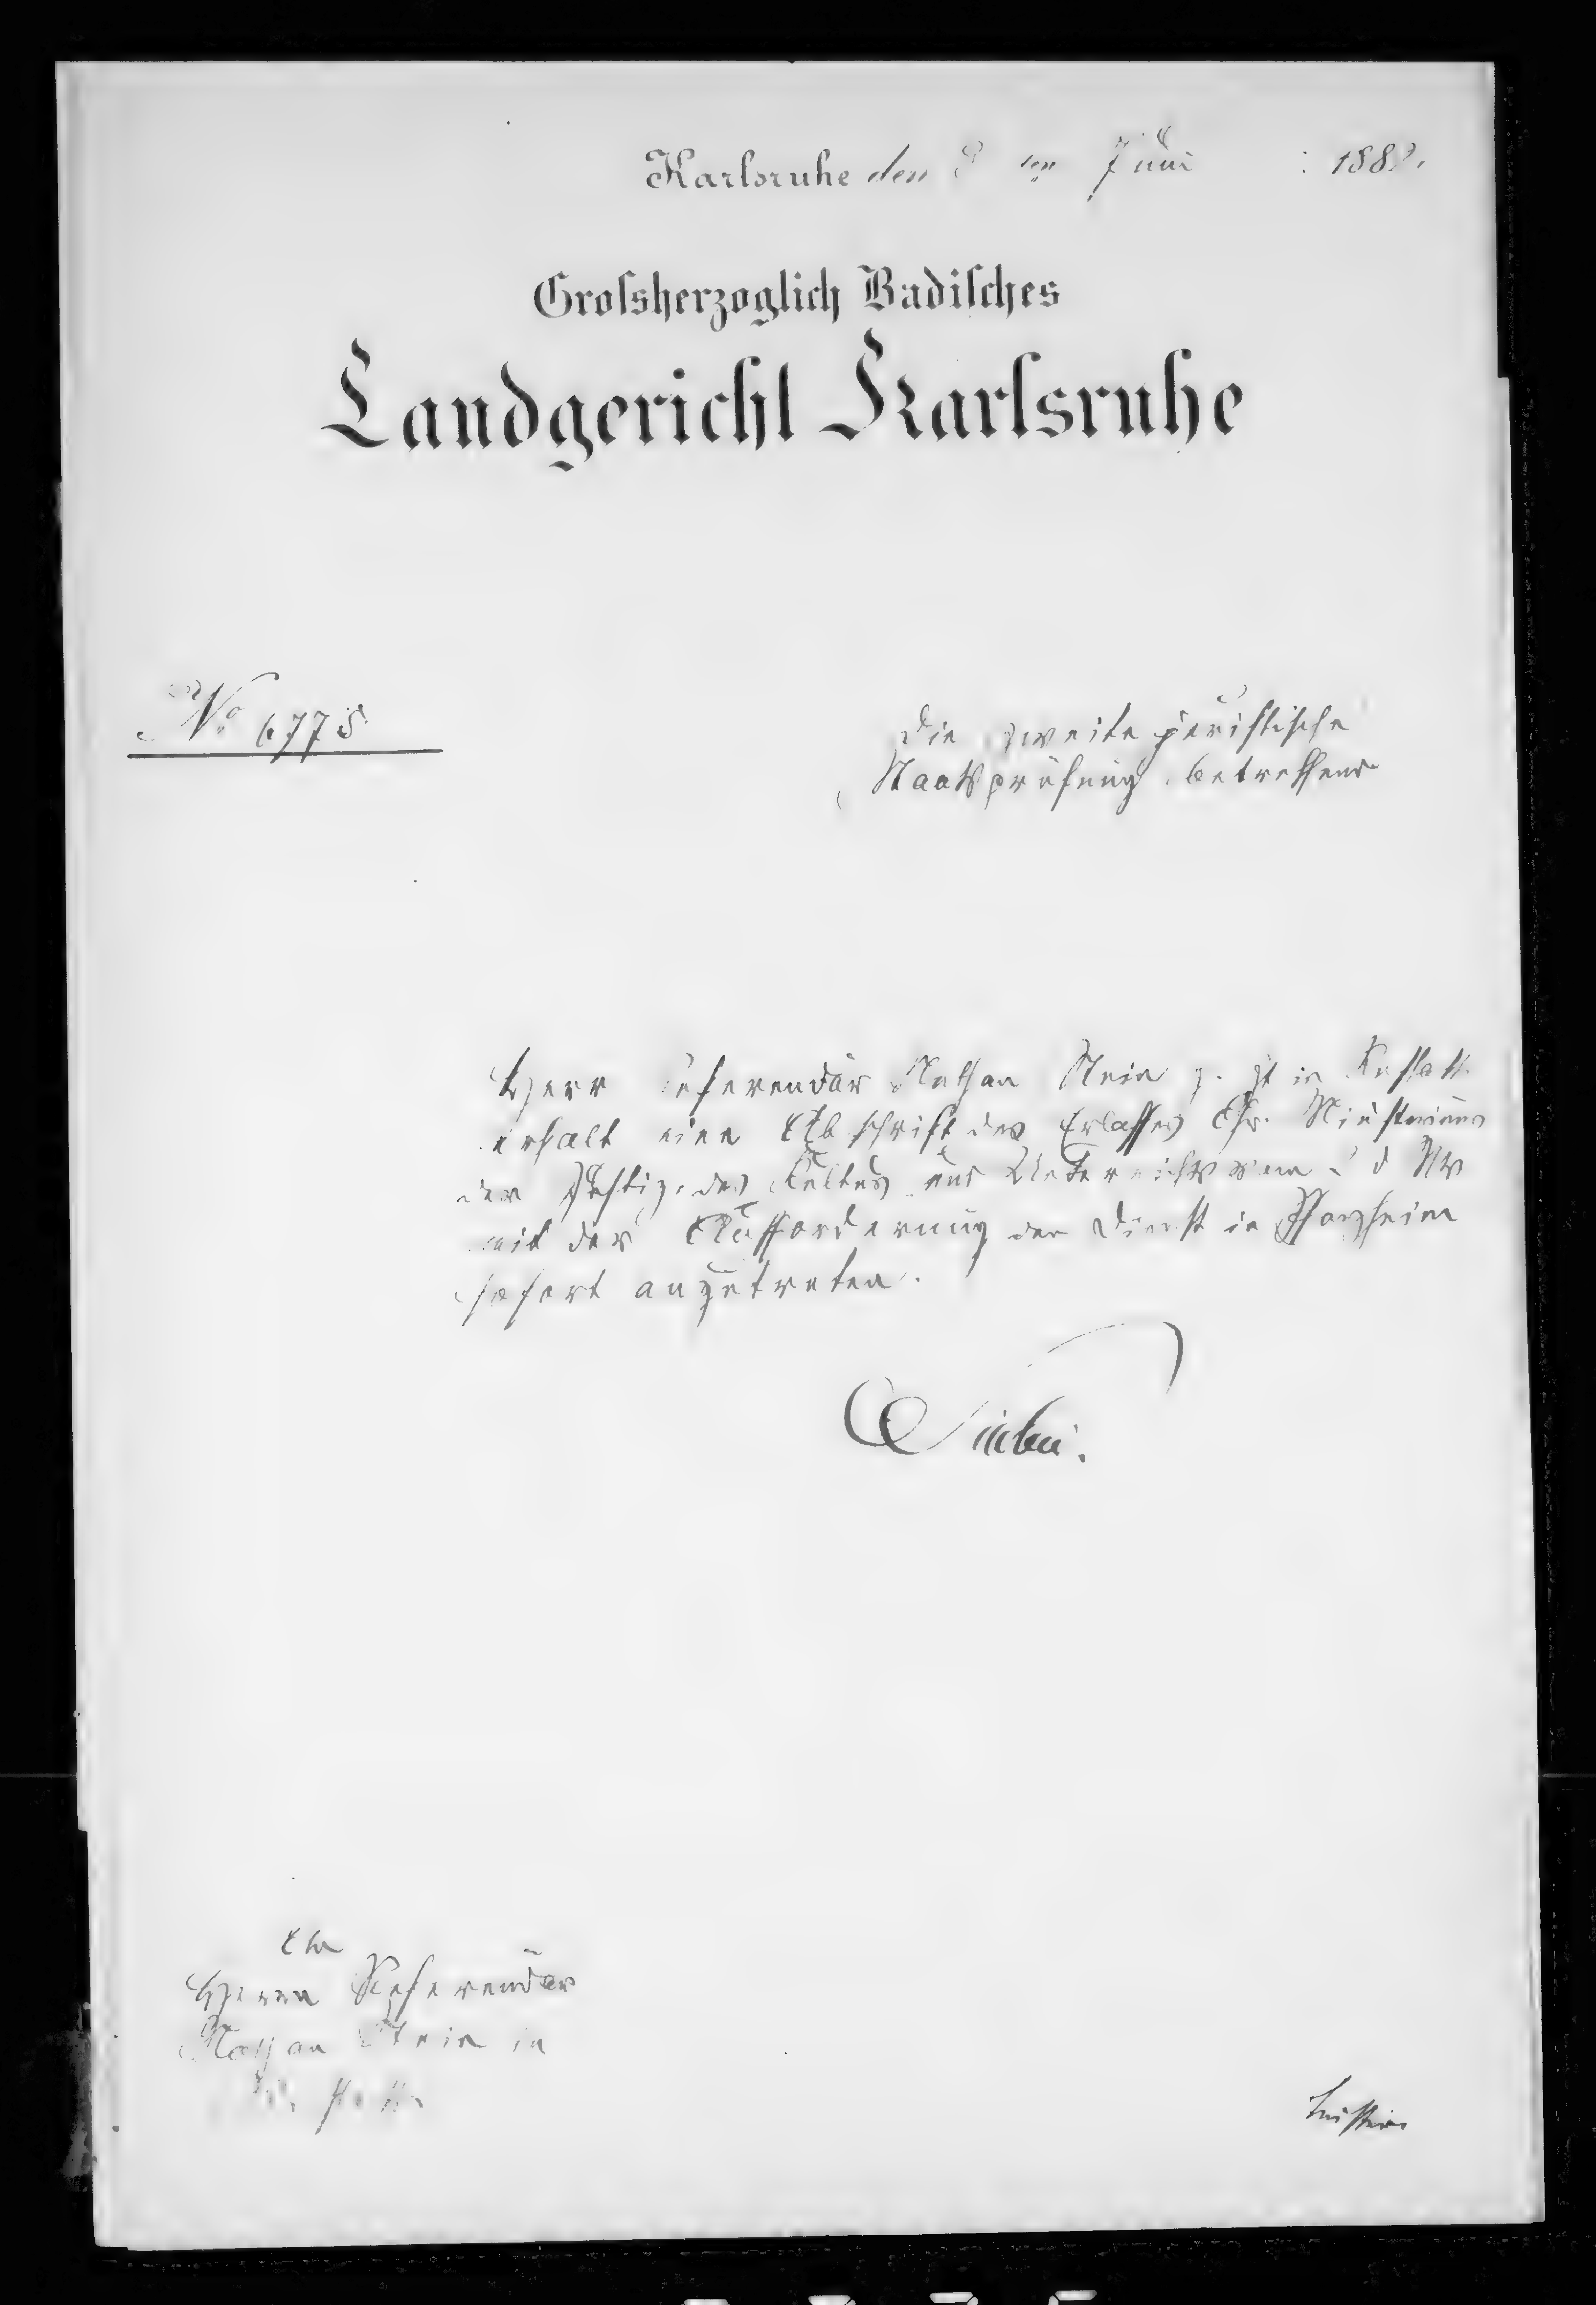 Karlsruhe den 8 ten Juni 188
Grossherzoglich Badisches
Landgericht Karlsruhe
No 6775
Die zweite juristische
Staatsprüfung betreffend
Herr Referendär Nathan Stein z. Zt in Rastatt
erhält eine Abschrift des Erlasses Gr. Ministeriums
der Justiz, des Kultus und Unterrichts vom d Mts
mit der Aufforderung den Dienst in Pforzheim
sofort anzutreten.
An
Herrn Referendär
Nathan Stein in
Rastatt